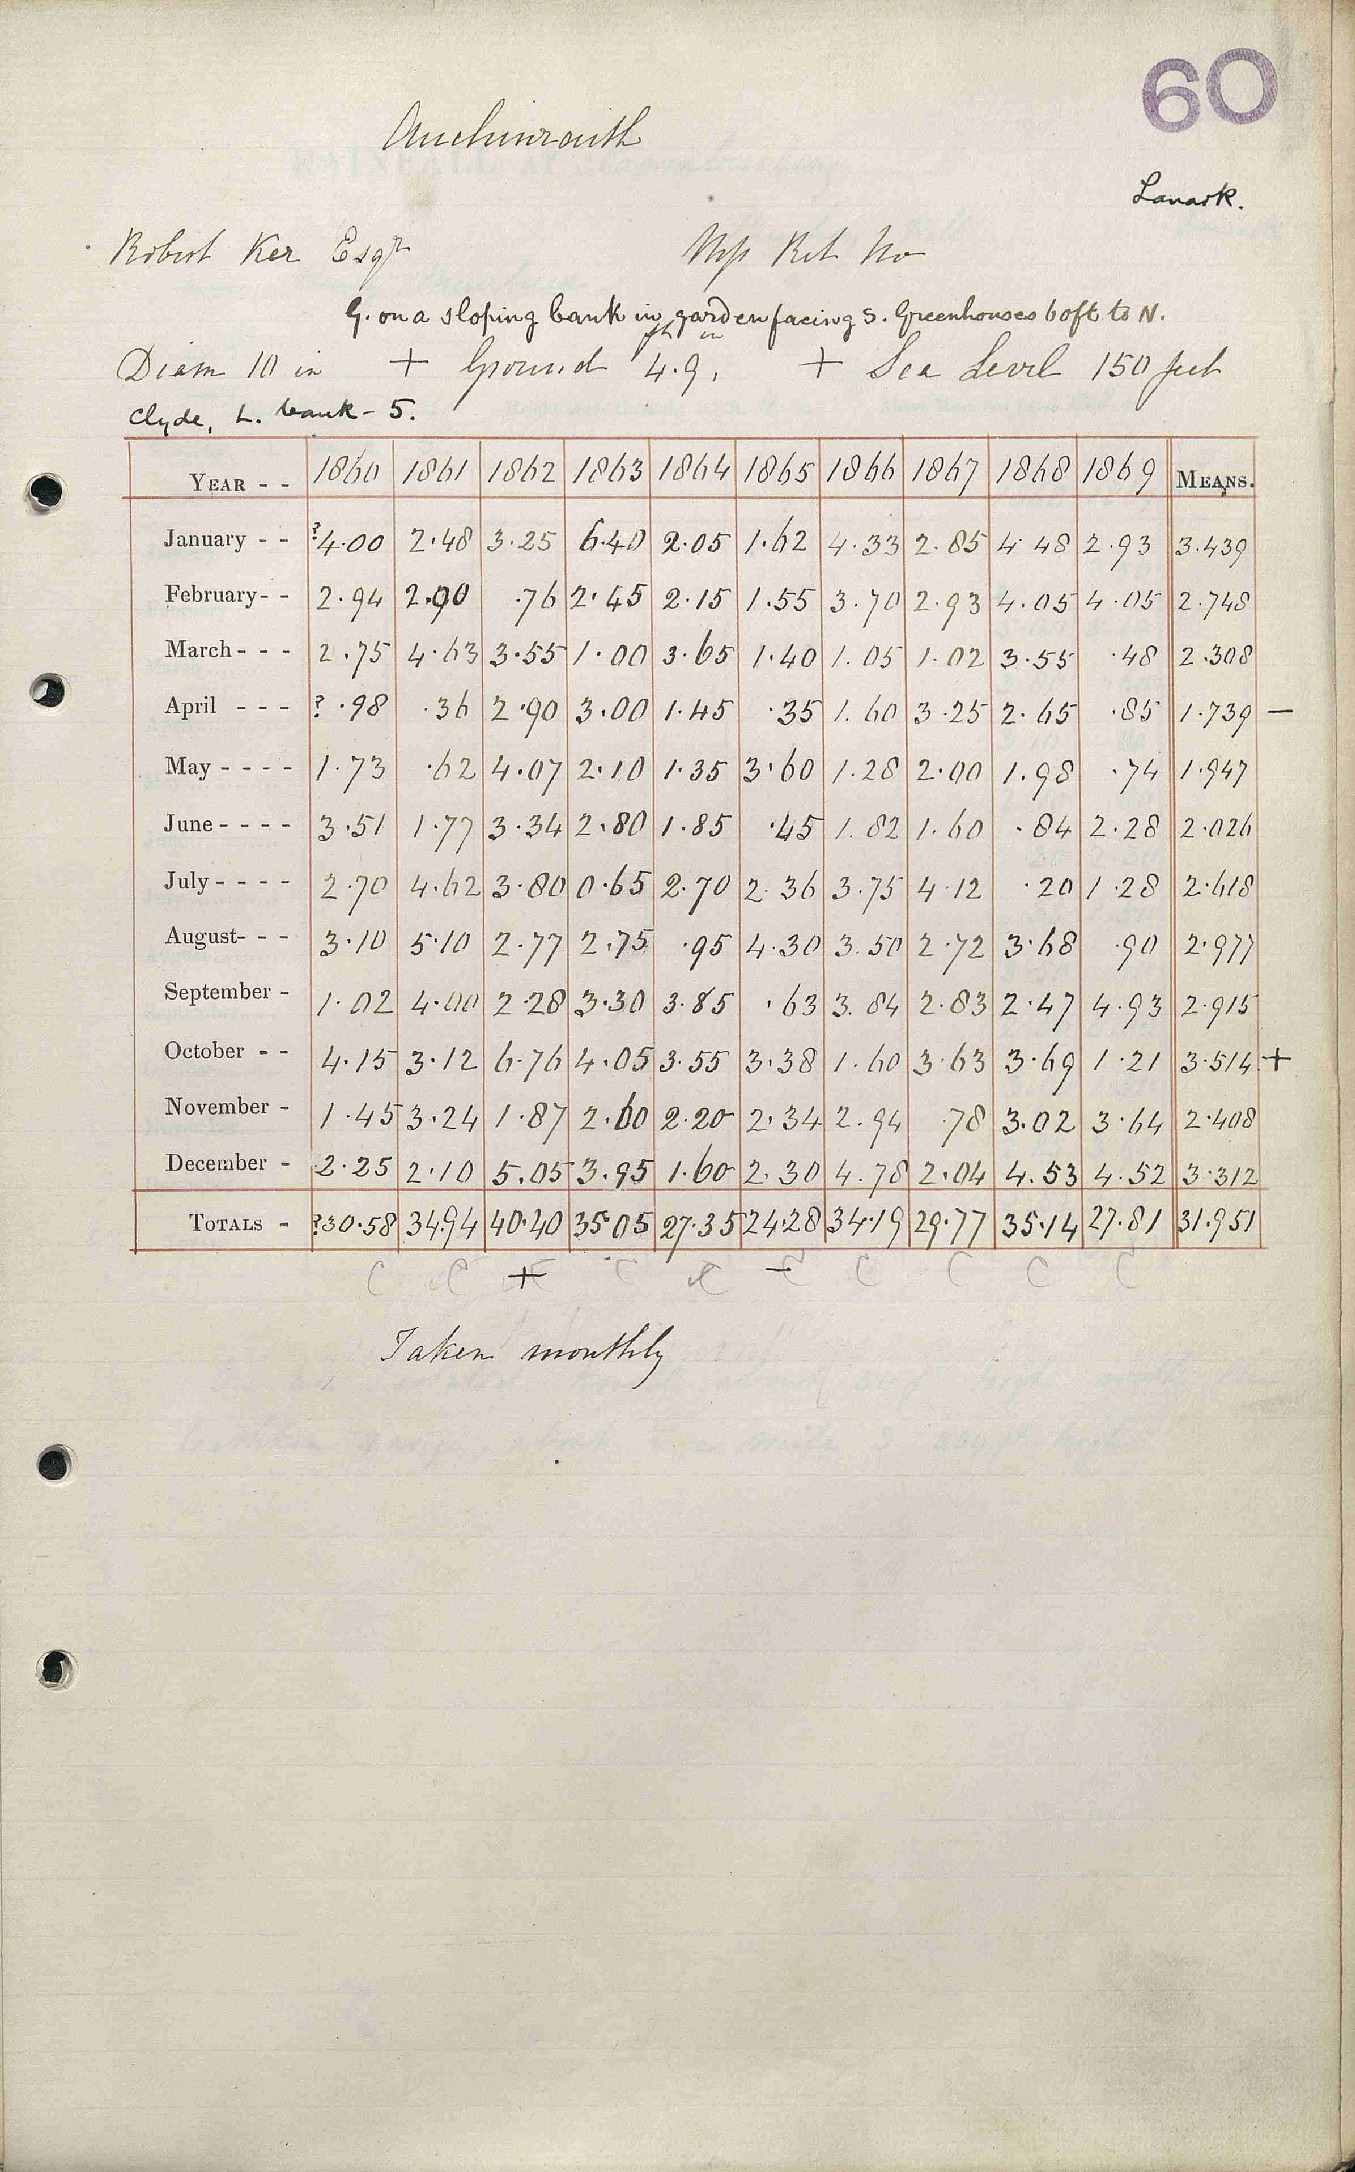 60
Auchinraith
Lanark.
Robert Ker Esqr
G. on a sloping bank in garden facing S. Greenhouses 60ft to N.
Diam 10 in + Ground 4 ft 9 in + Sea Level 150 feet
Clyde, L. bank - 5.
YEAR - - 1860 1861 1862 1863 1864 1865 1866 1867 1868 1869 MEANS.
January - - ?4.00 2.48 3.25 6.40 2.05 1.62 4.33 2.85 4.48 2.93 3.439
February - - 2.94 2.90 .76 2.45 2.15 1.55 3.70 2.93 4.05 4.05 2.748
March - - - 2.75 4.63 3.55 1.00 3.65 1.40 1.05 1.02 3.55 .48 2.308
April - - - ? .98 .36 2.90 3.00 1.45 .35 1.60 3.25 2.65 .85 1.739 —
May - - - - 1.73 .62 4.07 2.10 1.35 3.60 1.28 2.00 1.98 .74 1.947
June - - - - 3.51 1.77 3.34 2.80 1.85 .45 1.82 1.60 .84 2.28 2.026
July - - - - 2.70 4.62 3.80 0.65 2.70 2.36 3.75 4.12 .20 1.28 2.618
August - - - 3.10 5.10 2.77 2.75 .95 4.30 3.50 2.72 3.68 .90 2.977
September - 1.02 4.00 2.28 3.30 3.85 .63 3.84 2.83 2.47 4.93 2.915
October - - 4.15 3.12 6.76 4.05 3.55 3.38 1.60 3.63 3.69 1.21 3.514 +
November - 1.45 3.24 1.87 2.60 2.20 2.34 2.94 .78 3.02 3.64 2.408
December - 2.25 2.10 5.05 3.95 1.60 2.30 4.78 2.04 4.53 4.52 3.312
TOTALS - ?30.58 34.94 40.40 35.05 27.35 24.28 34.19 29.77 35.14 27.81 31.951
C C + C C — C C C C C
Taken monthly